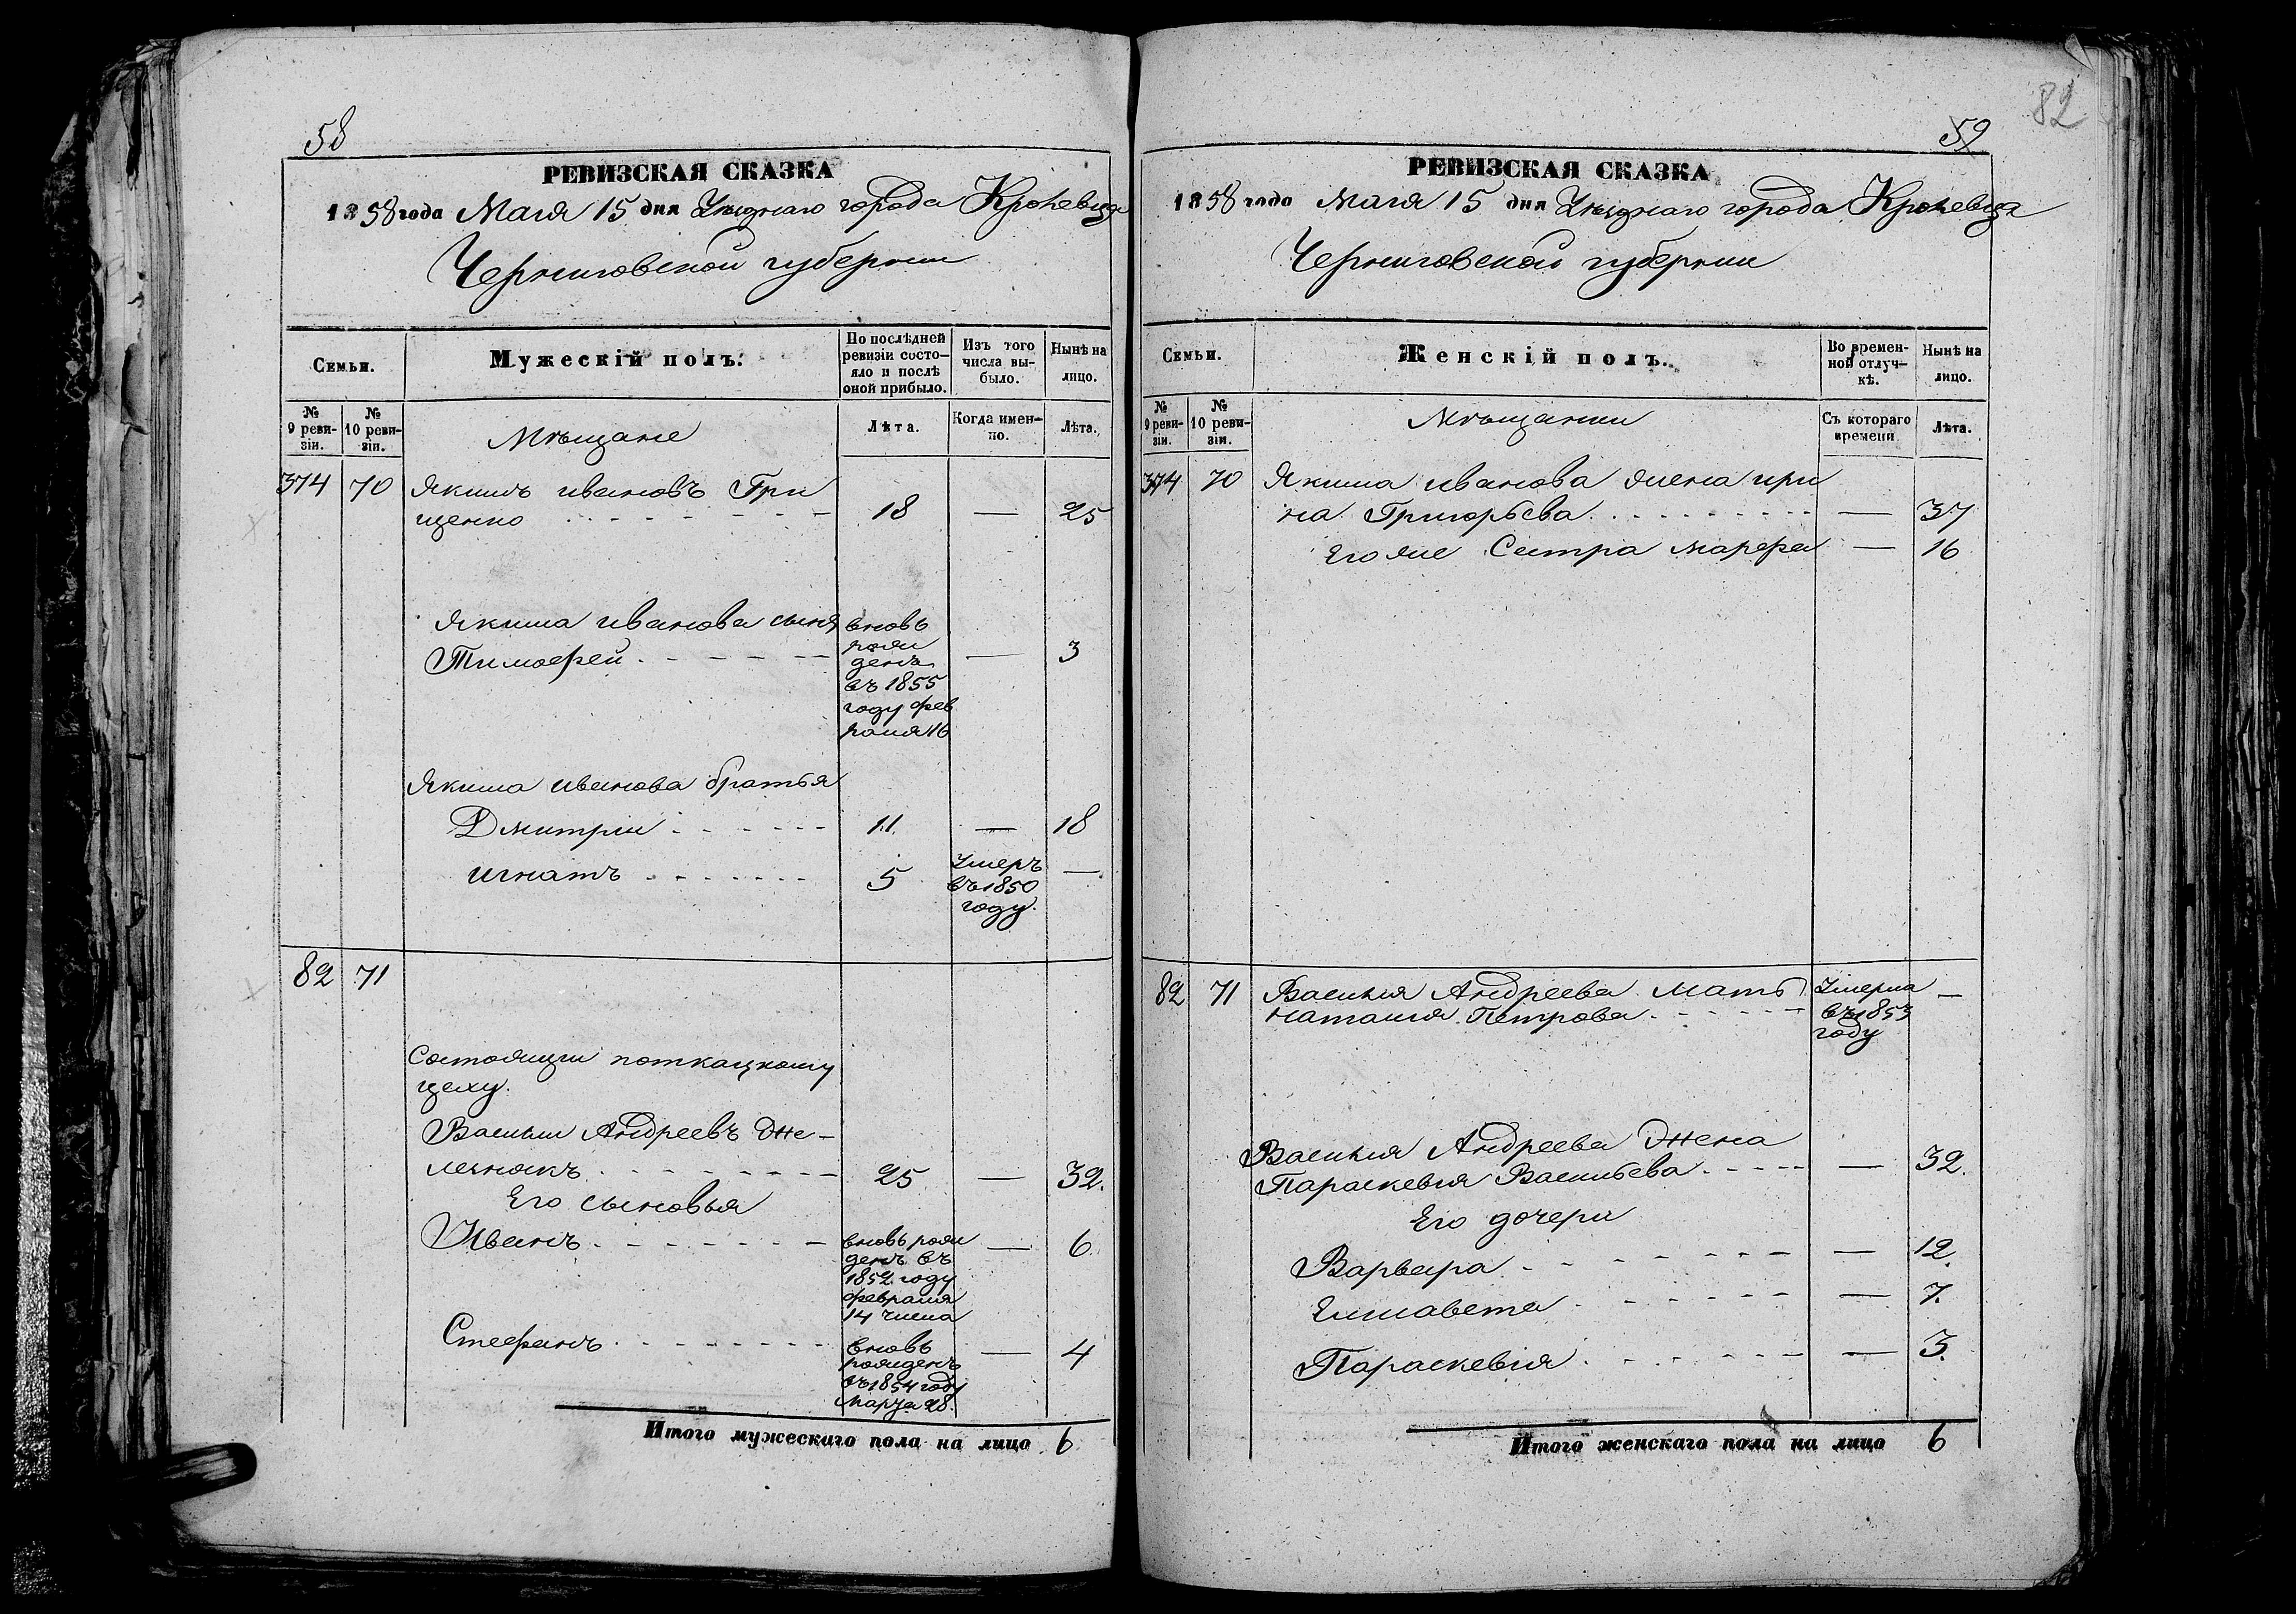 58
РЕВИЗСКАЯ СКАЗКА
1858 года Маія 15 дня Уѣзднаго города Кролевца
Черниговской губерніи
Семьи.
Мужескій полъ.
По послѣдней ревизіи состо-
яло и послѣ
оной прибыло.
Изъ того
числа вы-
было.
Нынѣ на
лицо.
№
9 реви-
зіи.
№
10 реви-
зіи.
Мѣщане
Лѣта.
Когда имен-
но.
Лѣта.
374 70 Якимъ Ивановъ Гри
щенко 18 — 25
Якима Иванова сынъ
Тимофей
вновь
рож
денъ
въ 1855
году фев
раля 16
— 3
Якима Иванова братья
Дмитрій 11 — 18
Игнатъ 5
Умеръ
въ 1850
году.
—
82 71
Состоящіи поткацкому
цеху.
Василій Андреевъ Же-
лезнякъ 25 — 32.
Его сыновья
Иванъ
вновь рож
денъ въ
1852 году
февраля
14 числа
— 6
Стефанъ
вновь
рожденъ
въ 1854 году
Марта 28.
— 4
Итого мужескаго пола на лицо 6
82
59
РЕВИЗСКАЯ СКАЗКА
1858 года Маія 15 дня Уѣзднаго города Кролевца
Черниговской губерніи
Семьи.
Женскій полъ.
Во времен-
ной отлуч-
кѣ.
Нынѣ на
лицо.
№
9 реви-
зіи.
№
10 реви-
зіи.
Мѣщанки
Съ котораго
времени
Лѣта.
374 70 Якима Иванова жена Ири
на Григорьева — 37
Его же Сестра Марфа — 16
82 71 Василія Андреева Мать
Наталія Петрова
Умерла
въ 1853
году
—
Василія Андреева Жена
Параскевія Васильева — 32.
Его дочери
Варвара — 12.
Елисавета — 7.
Параскевія — 3.
Итого женскаго пола на лицо 6